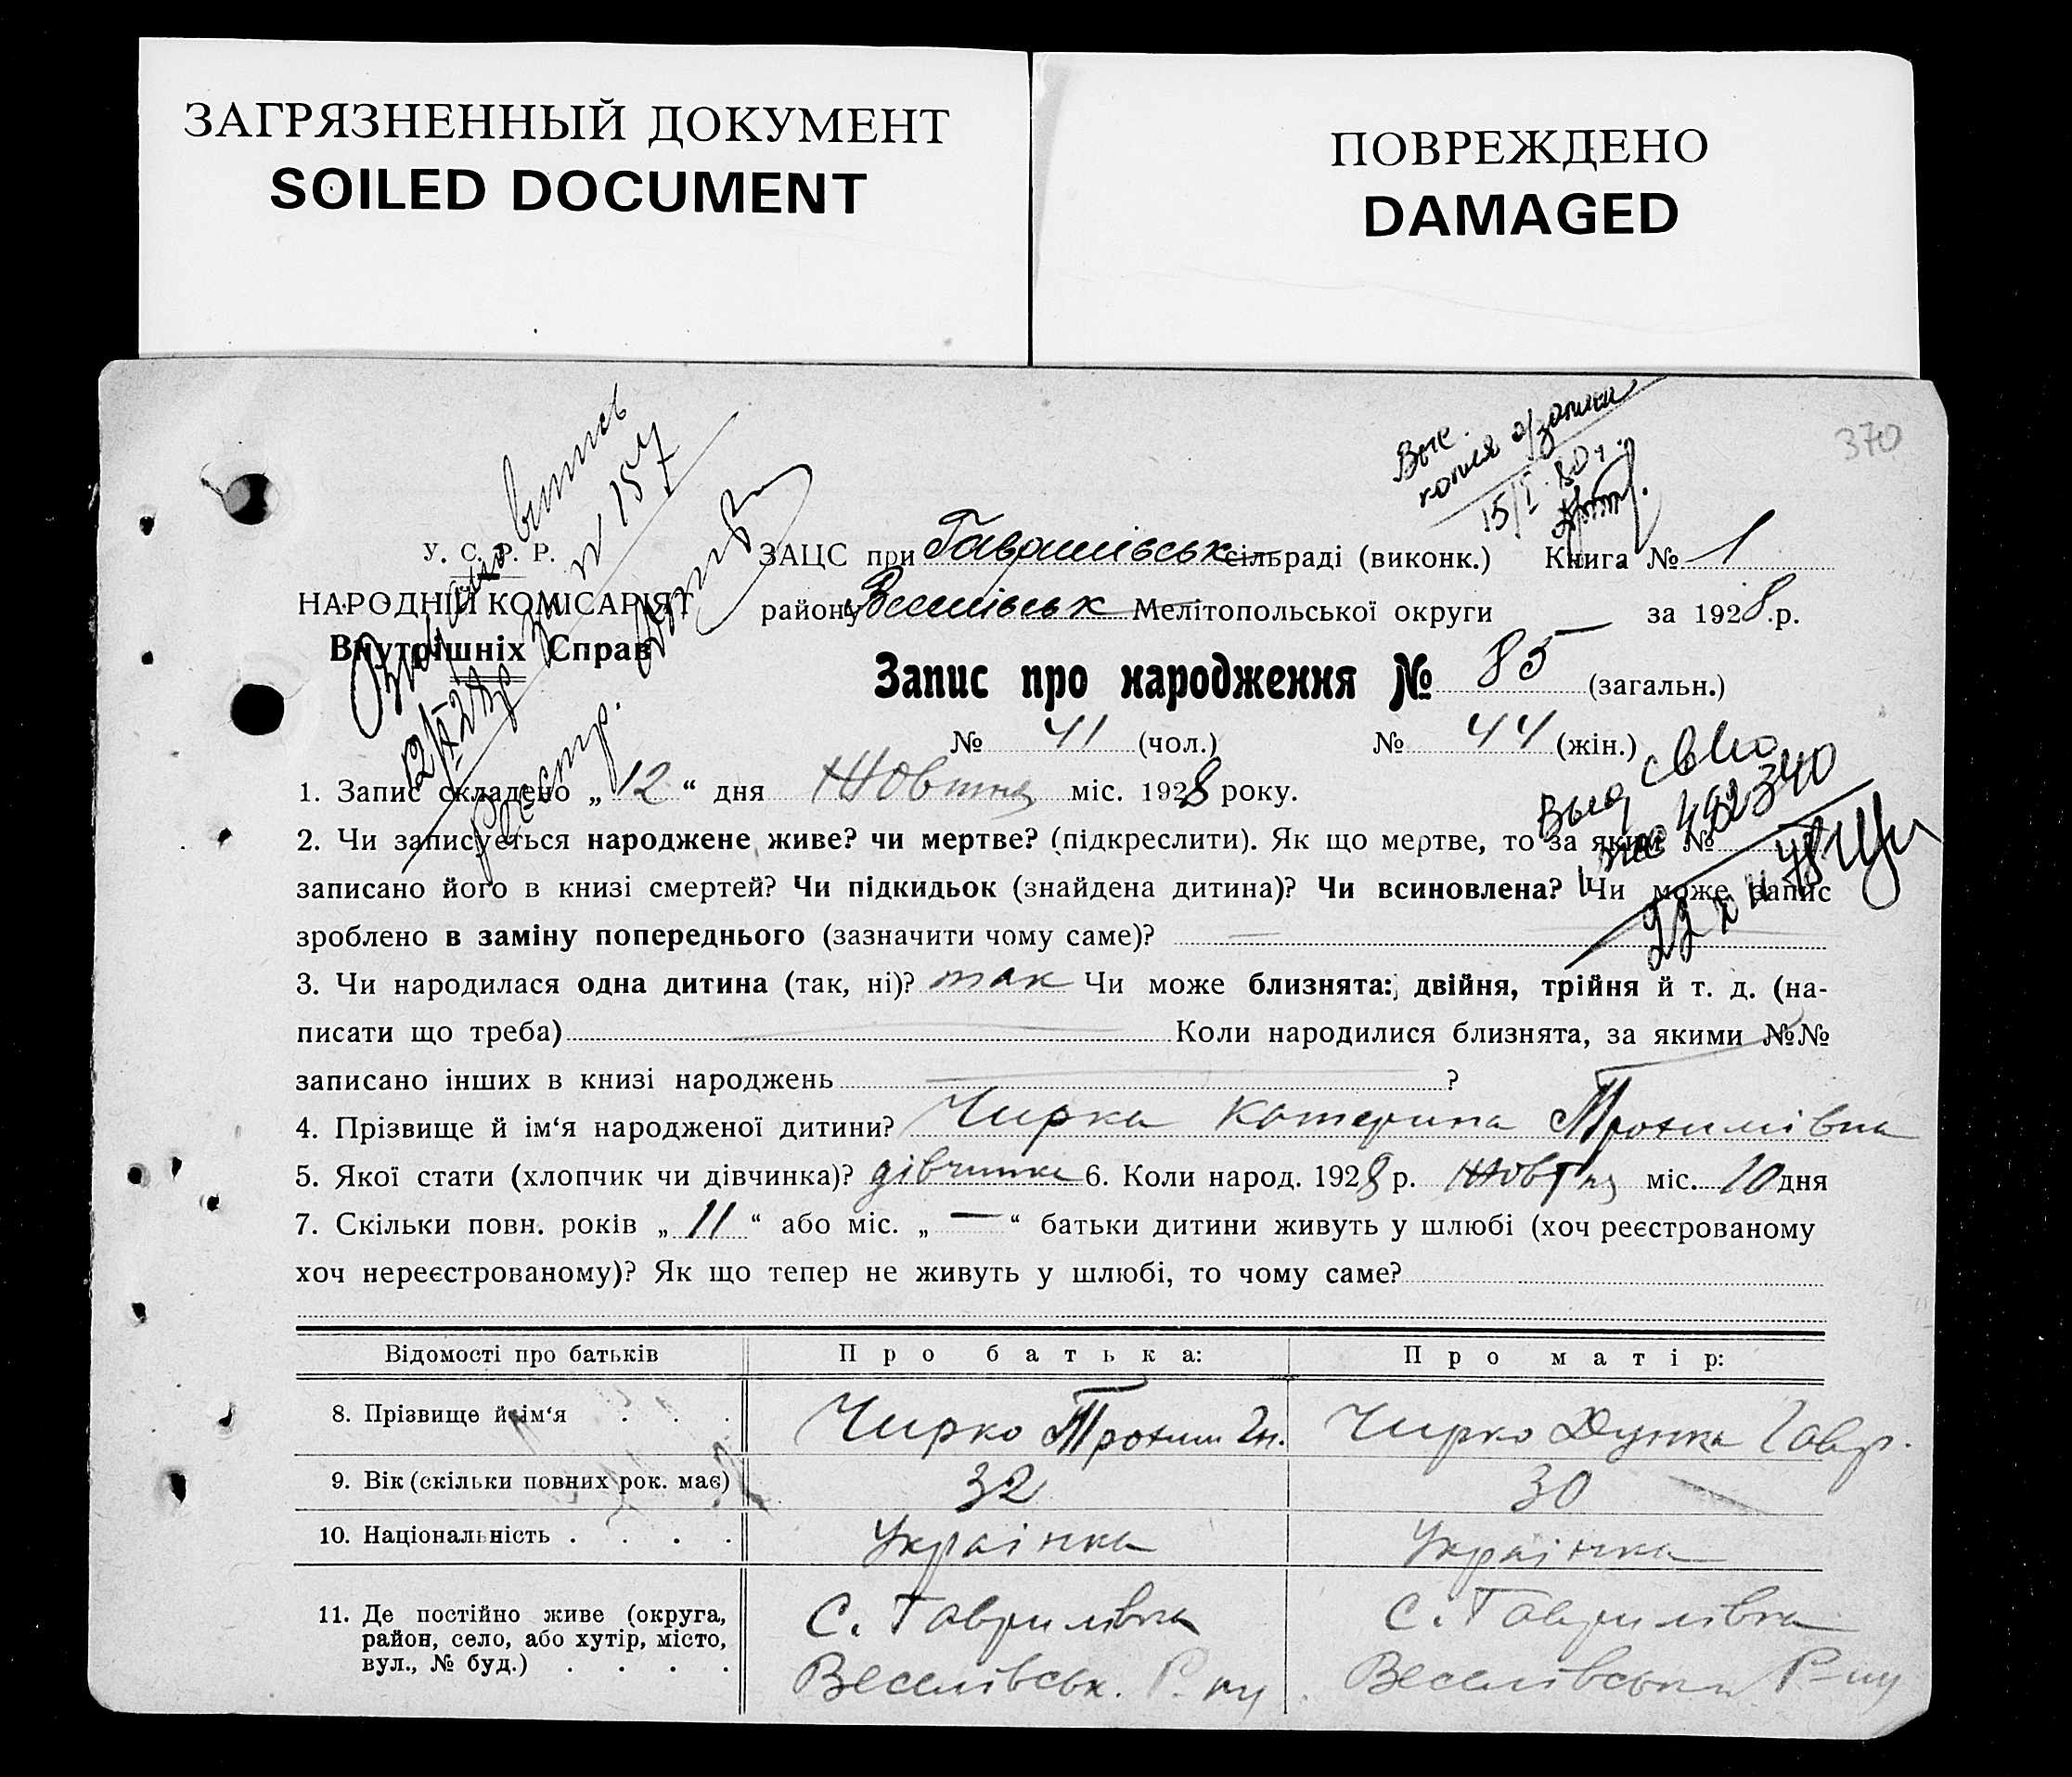 ЗАГРЯЗНЕННЫЙ ДОКУМЕНТ
SOILED DOCUMENT
ПОВРЕЖДЕНО
DAMAGED
370
Выс.
копия а/записи
15/I-80 г.
№ 157
У. С. Р. Р.
НАРОДНІЙ КОМІСАРІЯТ
Внутрішніх Справ
12/X 28р.
Реєстр.
ЗАЦС при Гаврилівськ сільраді (виконк.) Книга № 1
району Веселівськ Мелітопольської округи за 1928 р.
Запис про народження № 85 (загальн.)
№ 41 (чол.) № 44 (жін.)
Выд св-во
1. Запис складено „12“ дня Жовтня міс. 1928 року.
2. Чи записується народжене живе? чи мертве? (підкреслити). Як що мертве, то за яким №
записано його в книзі смертей? Чи підкидьок (знайдена дитина)? Чи всиновлена? Чи може запис
зроблено в заміну попереднього (зазначити чому саме)? —
3. Чи народилася одна дитина (так, ні)? так Чи може близнята: двійня, трійня й т. д. (на-
писати що треба) Коли народилися близнята, за якими №№
записано інших в книзі народжень ?
4. Прізвище й ім‘я народженої дитини? Чирка Катерина Трохимівна
5. Якої стати (хлопчик чи дівчинка)? дівчинка 6. Коли народ. 1928 р. Жовтня міс. 10 дня
7. Скільки повн. років „11“ або міс. „—“ батьки дитини живуть у шлюбі (хоч реєстрованому
хоч нереєстрованому)? Як що тепер не живуть у шлюбі, то чому саме?
Відомості про батьків Про батька: Про матір:
8. Прізвище й ім‘я . . . Чирко Трохим Гн. Чирко Дунка Гавр.
9. Вік (скільки повних рок. має) 32 30
10. Національність . . . . Українка Українка
11. Де постійно живе (округа, С. Гаврилівка С. Гаврилівка
район, село, або хутір, місто,
вул., № буд.) . . . . Веселівськ. Р-ну Веселівськ Р-ну